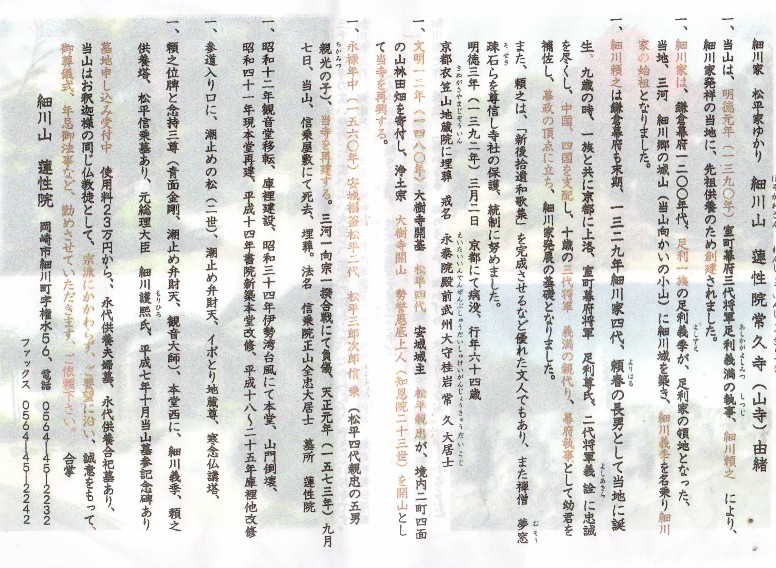 細川家 松平家ゆかり 細川山 蓮性院常久寺(山寺)由緒
一、当山は、明徳元年(一三九〇年)室町幕府三代将軍足利義満の執事、細川頼之 により、
細川家発祥の当地に、先祖供養のため創建されました。
一、細川家は、鎌倉幕府一二〇〇年代、足利一族の足利義季が、足利家の領地となった、
当地、三河 細川郷の城山(当山向かいの小山)に細川城を築き、細川義季を名乗り細川
家の始祖となりました。
一、細川頼之は鎌倉幕府も末期、一三二九年細川家四代、頼春の長男として当地に誕
生、九歳の時、一族と共に京都に上洛、室町幕府将軍 足利尊氏、二代将軍義詮に忠誠
を尽くし、中国、四国を支配し、十歳の三代将軍 義満の親代り、幕府執事として幼君を
補佐し、幕政の頂点に立ち、細川家発展の基礎となりました。
また、頼之は、「新後拾遺和歌集」を完成させるなど優れた文人でもあり、また禅僧 夢窓
疎石らを尊信し寺社の保護、統制に努めました。
明徳三年(一三九二年)三月二日 京都にて病没、行年六十四歳
京都衣笠山地蔵院に埋葬 戒名 永泰院殿前武州大守桂岩常久大居士
一、文明一二年(一四八〇年)大樹寺開基 松平四代 安城城主 松平親忠が、境内二町四面
の山林田畑を寄付し、浄土宗 大樹寺開山 勢誉愚底上人(知恩院二十三世)を開山とし
て当寺を再興する。
一、永禄年中(一五六〇年)安城福釜松平二代 松平三郎次郎信乗(松平四代親忠の五男
親光の子)、当寺を再建する。三河一向宗一揆合戦にて負傷、天正元年(一五七三年)九月
七日、当山、信乗屋敷にて死去、埋葬。法名 信乗院正山全忠大居士 墓所 蓮性院
一、昭和十二年観音堂移転、庫裡建設、昭和三十四年伊勢湾台風にて本堂、山門倒壊、
昭和四十一年現本堂再建、平成十四年書院新築本堂改修、平成十八~二十五年庫裡他改修
一、参道入り口に、潮止めの松(二世)、潮止め弁財天、イボとり地蔵尊、寒念仏講塔、
一、頼之位牌と念持三尊(青面金剛、潮止め弁財天、観音大師)、本堂西に、細川義季、頼之
供養塔、松平信乗墓あり、元総理大臣 細川護煕氏、平成七年十月当山墓参記念碑あり
墓地申し込み受付中 使用料23万円から、永代供養夫婦墓、永代供養合祀墓あり、
当山はお釈迦様の同じ仏教徒として、宗派にかかわらず、ご要望に沿い、誠意をもって、
御葬儀式、年忌御法事など、勤めさせていただきます、ご依頼下さい。 合掌
細川山 蓮性院 岡崎市細川町字権水56、電話 0564―45―2232
ファックス 0564―45―2242